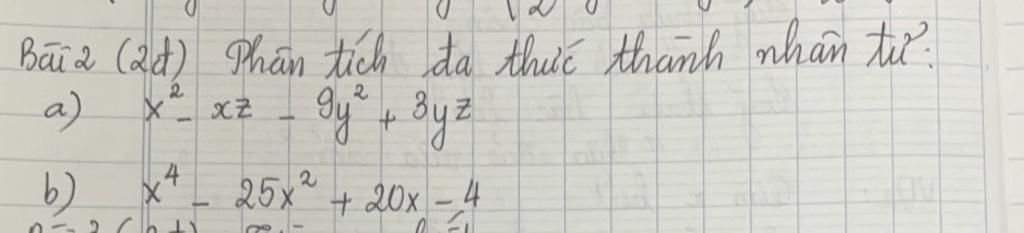 Bài 2 (2đ) Phân tích đa thức thành nhân tử:
a) x² - xz - 9y² + 3yz
b) x⁴ - 25x² + 20x - 4